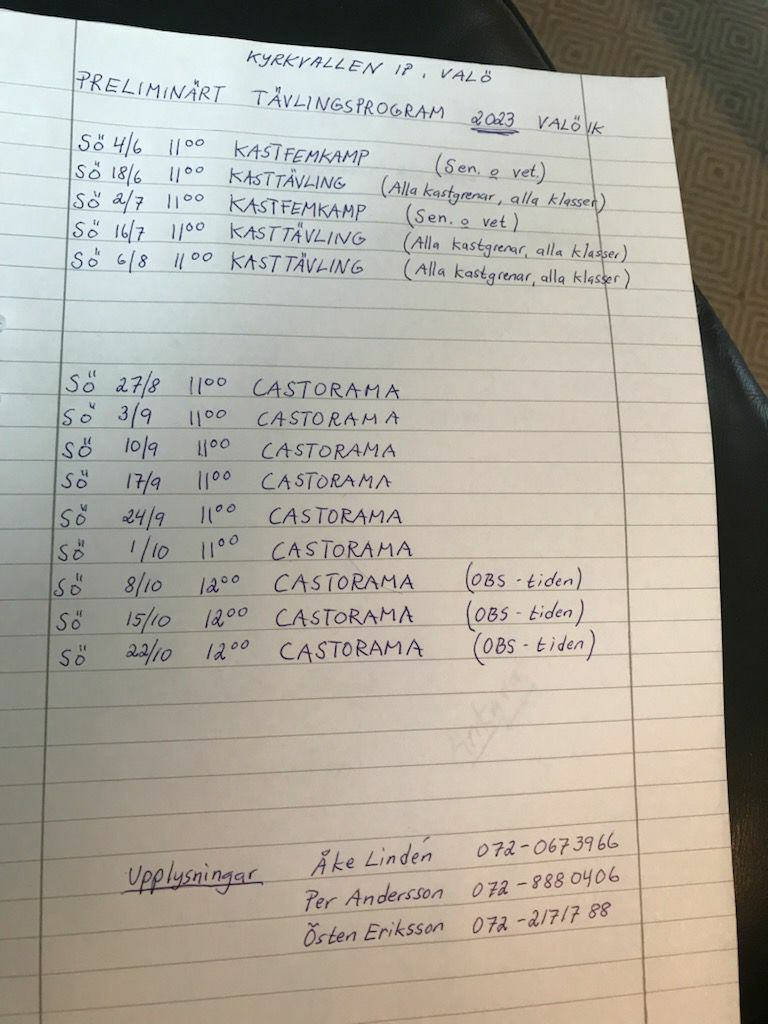 KYRKVALLEN IP, VALÖ
PRELIMINÄRT TÄVLINGSPROGRAM 2023 VALÖ IK
SÖ 4/6 11⁰⁰ KASTFEMKAMP (Sen. o vet.)
SÖ 18/6 11⁰⁰ KASTTÄVLING (Alla kastgrenar, alla klasser)
SÖ 2/7 11⁰⁰ KASTFEMKAMP (Sen. o vet)
SÖ 16/7 11⁰⁰ KASTTÄVLING (Alla kastgrenar, alla klasser)
SÖ 6/8 11⁰⁰ KASTTÄVLING (Alla kastgrenar, alla klasser)
SÖ 27/8 11⁰⁰ CASTORAMA
SÖ 3/9 11⁰⁰ CASTORAMA
SÖ 10/9 11⁰⁰ CASTORAMA
SÖ 17/9 11⁰⁰ CASTORAMA
SÖ 24/9 11⁰⁰ CASTORAMA
SÖ 1/10 11⁰⁰ CASTORAMA
SÖ 8/10 12⁰⁰ CASTORAMA (OBS - tiden)
SÖ 15/10 12⁰⁰ CASTORAMA (OBS - tiden)
SÖ 22/10 12⁰⁰ CASTORAMA (OBS - tiden)
Upplysningar Åke Lindén 072-0673966
Per Andersson 072-8880406
Östen Eriksson 072-21717 88